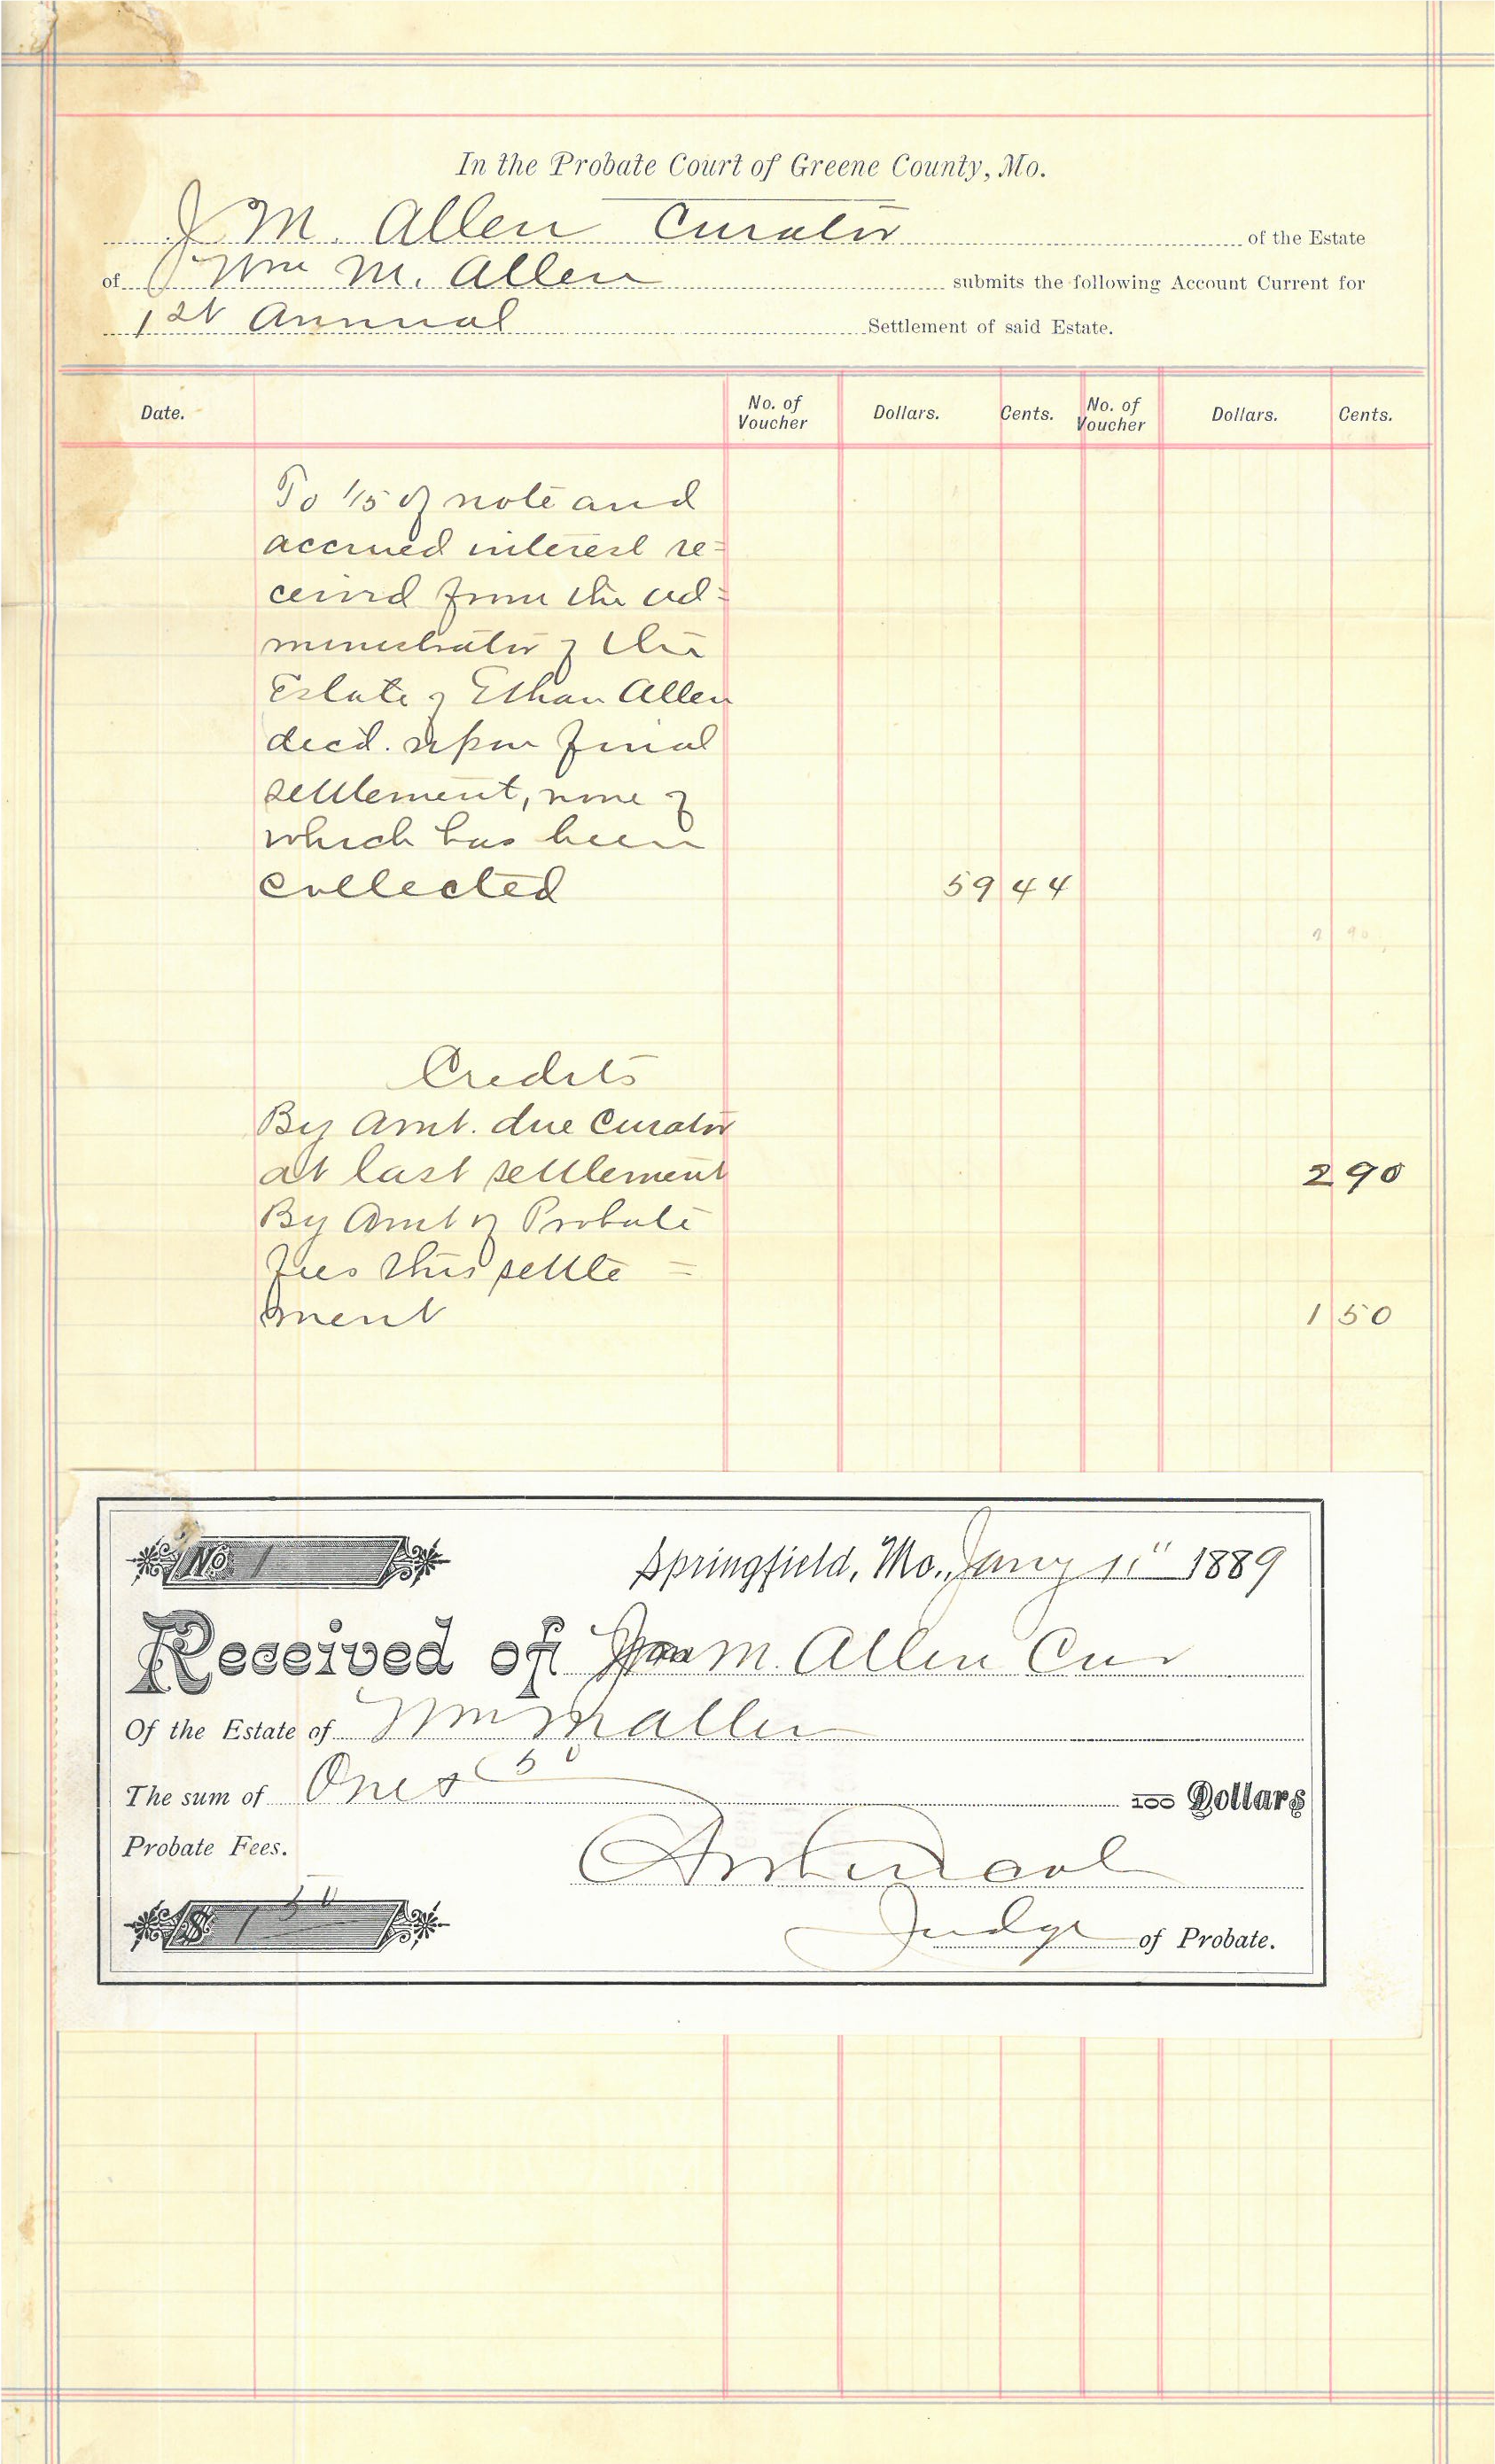 In the Probate Court of Greene County, Mo.
J M. Allen Curator of the Estate
of Wm M. Allen submits the following Account Current for
1st Annual Settlement of said Estate.
Date. No. of Voucher Dollars. Cents. No. of Voucher Dollars. Cents.
To 1/5 of note and
accrued interest re=
ceived from the ad=
ministrator of the
Estate of Ethan Allen
decd. upon final
settlement, none of
which has been
collected 59 44
2 90
Credits
By Amt. due Curator
at last settlement 2 90
By Amt of Probate
fees this settle =
ment 1 50
No. 1 Springfield, Mo., Jany 11" 1889
Received of M. Allen Cur
Of the Estate of Wm M Allen
The sum of One & 50 100 Dollars
Probate Fees.
$ 1 50
Judge of Probate.